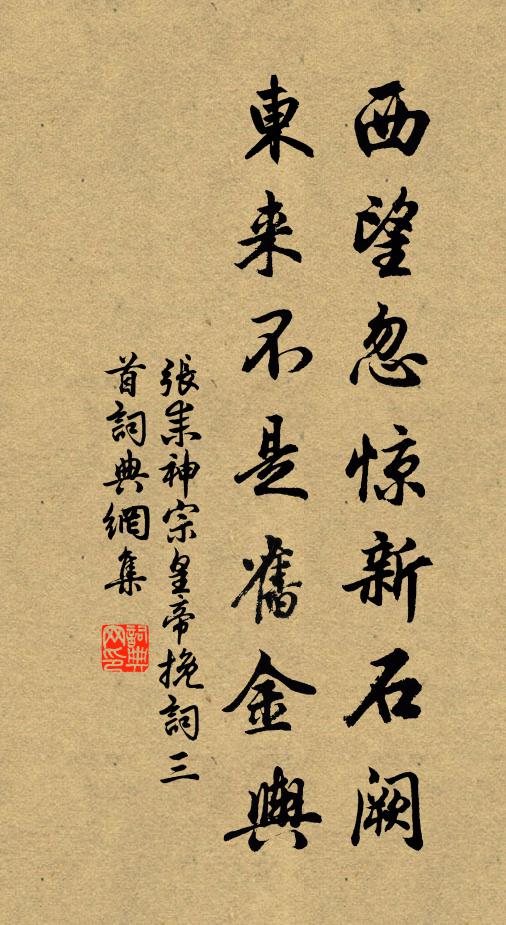 西望忽惊新石阙
東来不是舊金輿
張耒神宗皇帝挽詞三
首詞典網集
詞典
网印